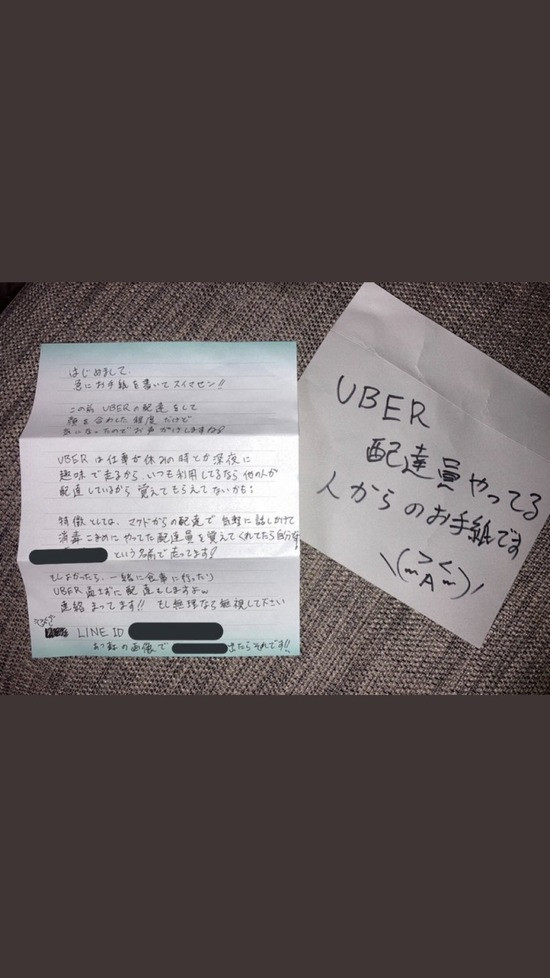 はじめまして、
急にお手紙を書いてスイマセン!!
この前 UBERの配達をして
顔を合わした程度だけど
気になったのでお声がけしますね!
UBERは仕事が休みの時とか深夜に
趣味で走るから、いつも利用してるなら他の人が
配達しているから覚えてもらえてないかも;
特徴としては、マクドからの配達で気軽に話しかけて
消毒こまめにやってた配達員を覚えてくれてたら自分
という名前で走ってます!
もしよかったら、一緒に食事に行ったり
UBER 通さずに配達をしますよw
連絡まってます!! もし無理なら無視して下さい
LINE ID
の画像で
出たらそれです!!
UBER
配達員やってる
人からのお手紙です
\(>A<)/